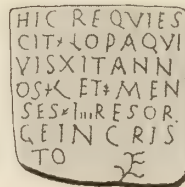 HIC REQVIES
CIT LOPAQVI
VISXIT ANN
OS L ET MEN
SES IIII RESOR
GE IN CRIS
TO